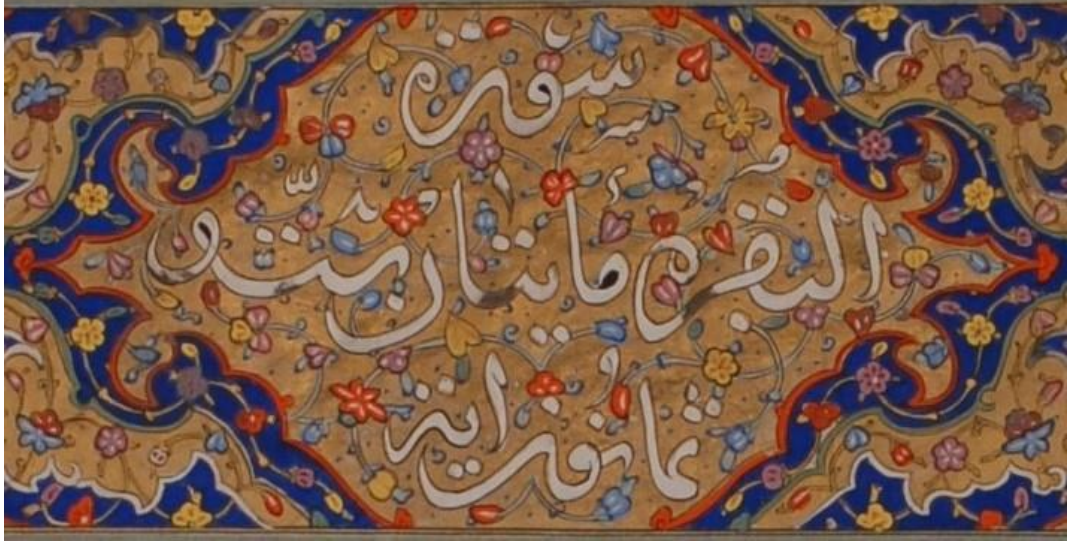 سورة
البقرة مائتان وست و
ثمانون اية